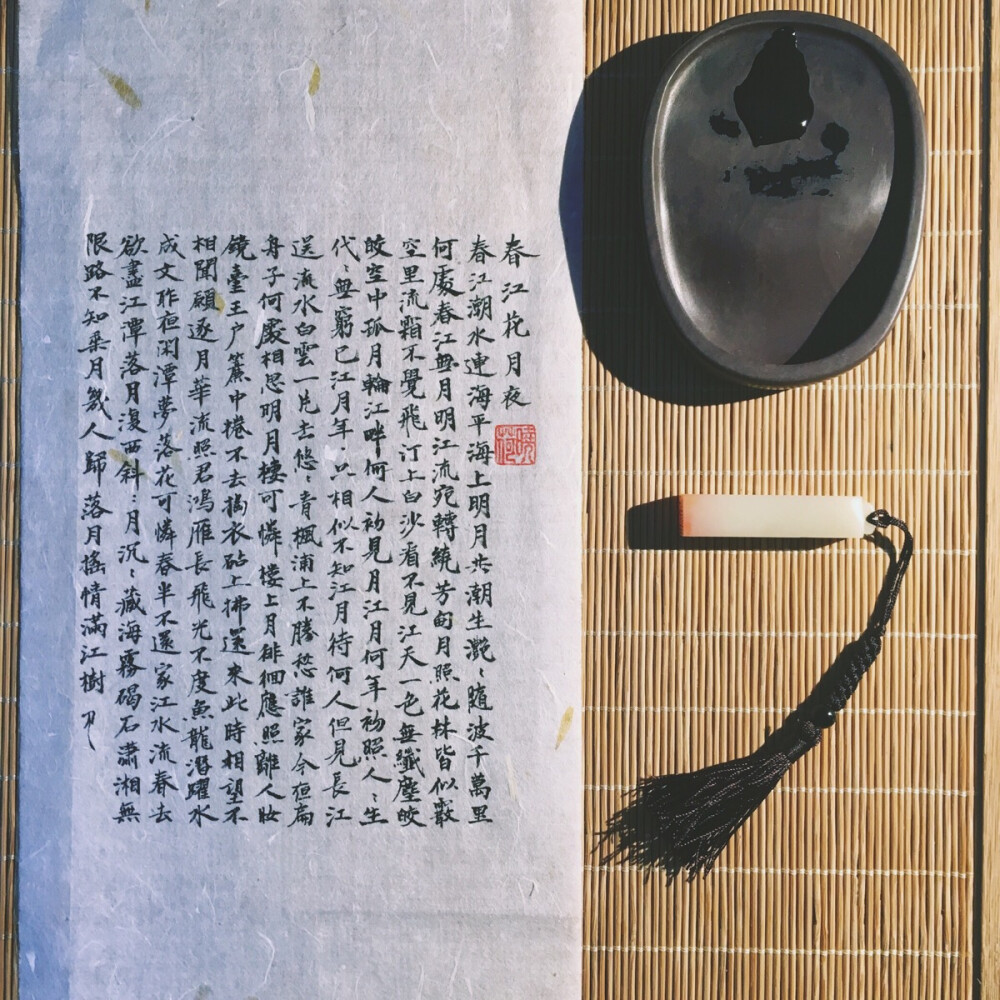 春江花月夜
春江潮水連海平海上明月共潮生灔〻隨波千萬里
何處春江無月明江流宛轉繞芳甸月照花林皆似霰
空里流霜不覺飛汀上白沙看不見江天一色無纖塵皎
皎空中孤月輪江畔何人初見月江月何年初照人〻生
代〻無窮已江月年〻只相似不知江月待何人但見長江
送流水白雲一片去悠〻青楓浦上不勝愁誰家今夜扁
舟子何處相思明月樓可憐樓上月徘徊應照離人妝
鏡臺玉户簾中捲不去搗衣砧上拂還來此時相望不
相聞願逐月華流照君鴻雁長飛光不度魚龍潛躍水
成文昨夜閑潭夢落花可憐春半不還家江水流春去
欲盡江潭落月復西斜〻月沉〻藏海霧碣石瀟湘無
限路不知乘月幾人歸落月搖情滿江樹